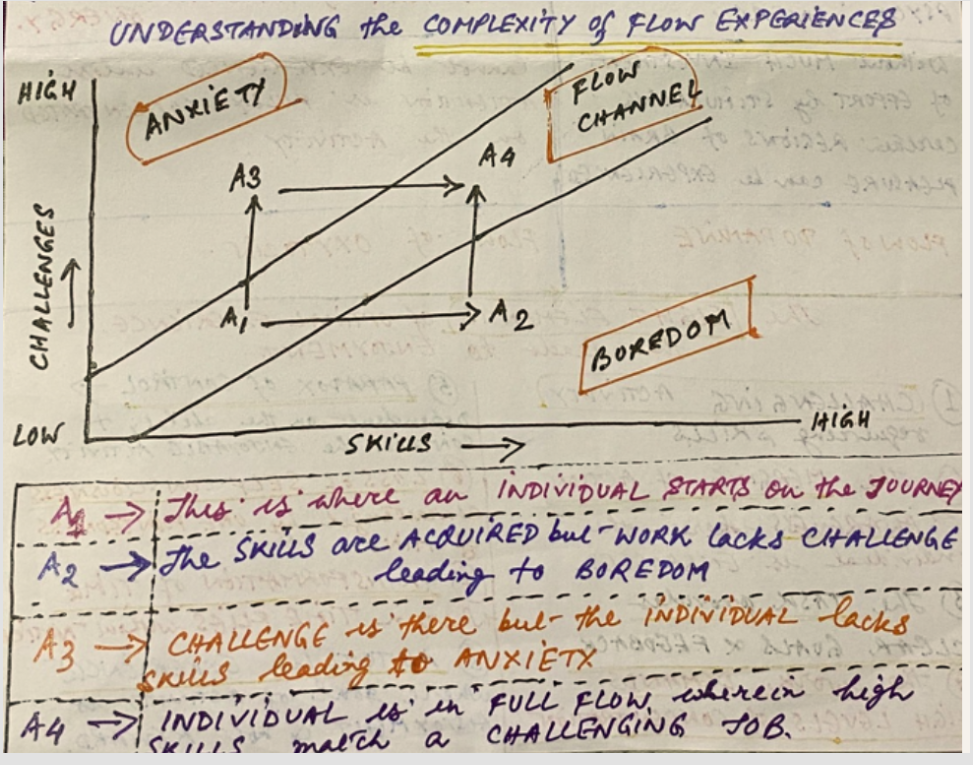 UNDERSTANDING the COMPLEXITY of FLOW EXPERIENCES
HIGH
ANXIETY
FLOW
CHANNEL
A3
A4
CHALLENGES
A1
A2
BOREDOM
LOW
SKILLS
HIGH
A1 → This is where an INDIVIDUAL STARTS on the JOURNEY
A2 → The SKILLS are ACQUIRED but WORK lacks CHALLENGE
leading to BOREDOM
A3 → CHALLENGE is there but the INDIVIDUAL lacks
SKILLS leading to ANXIETY
A4 → INDIVIDUAL is in FULL FLOW wherein high
SKILLS match a CHALLENGING JOB.